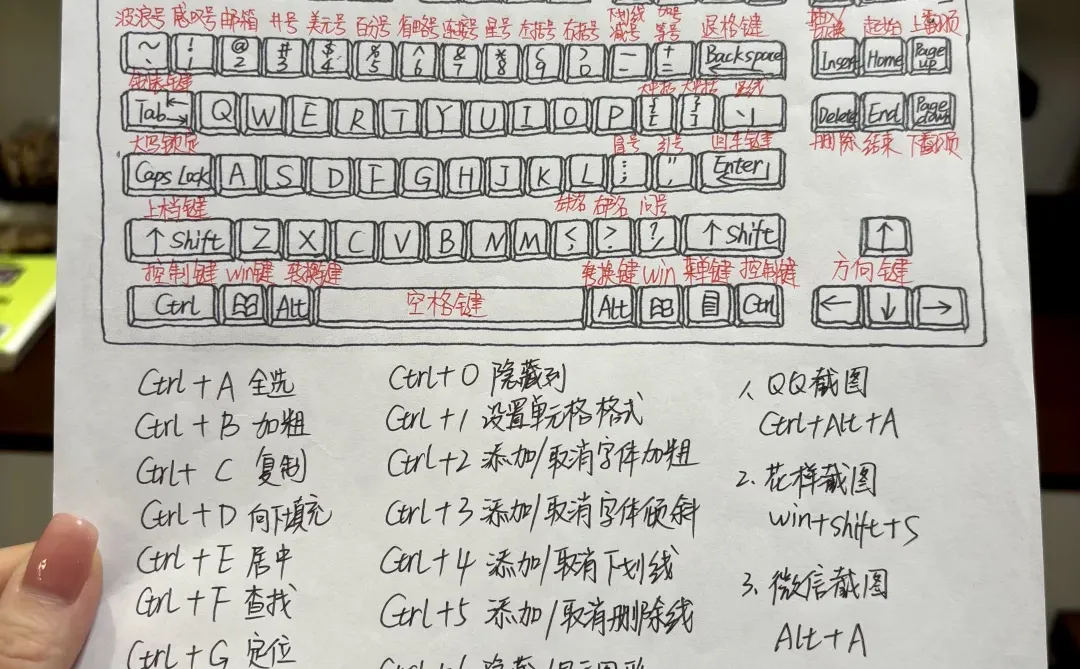 波浪号 感叹号 邮箱 井号 美元号 百分号 省略号 连接号 星号 左括号 右括号 下划线 减号 加号 等号 退格键 起始 上翻页
~ ` ! 1 @ 2 # 3 $ 4 % 5 ^ 6 & 7 * 8 ( 9 ) 0 _ - + = Backspace Insert Home Page up
Tab Q W E R T Y U I O P { [ } ] \ Delete End Page down
大写锁定 冒号 引号 回车键 删除 结束 下翻页
Caps Lock A S D F G H J K L : ; " ' Enter
上档键 右书名 问号
↑ Shift Z X C V B N M < , > . ? / ↑ Shift ↑
控制键 win键 转换键 转换键 win 菜单键 控制键 方向键
Ctrl Alt 空格键 Alt Ctrl ← ↓ →
Ctrl + A 全选
Ctrl + B 加粗
Ctrl + C 复制
Ctrl + D 向下填充
Ctrl + E 居中
Ctrl + F 查找
Ctrl + G 定位
Ctrl + 0 隐藏列
Ctrl + 1 设置单元格格式
Ctrl + 2 添加/取消字体加粗
Ctrl + 3 添加/取消字体倾斜
Ctrl + 4 添加/取消下划线
Ctrl + 5 添加/取消删除线
1、QQ截图
Ctrl+Alt+A
2、花样截图
win+shift+S
3、微信截图
Alt+A